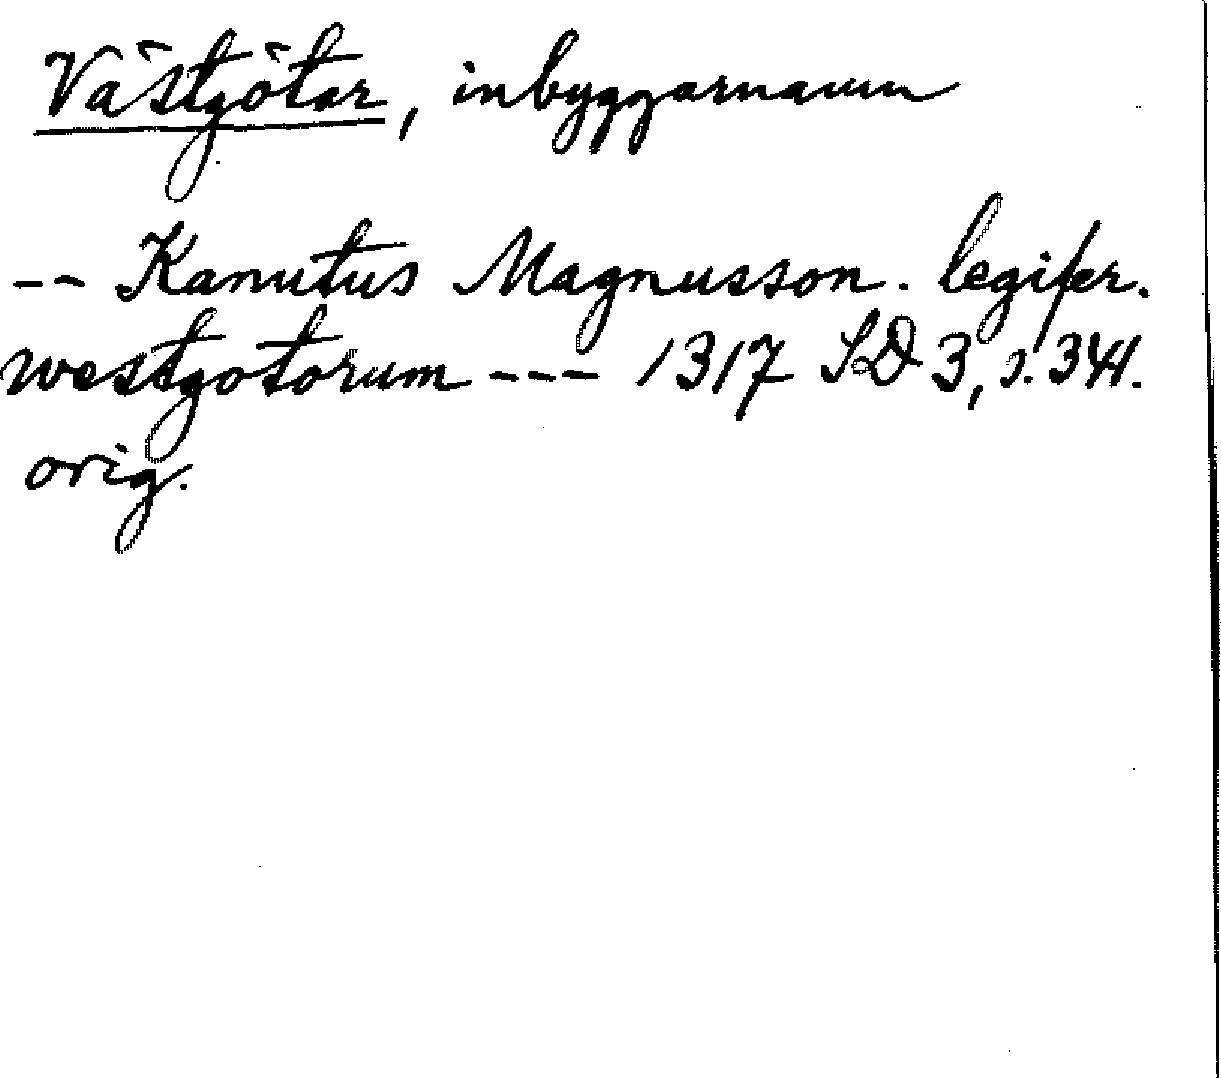 Västgötar, inbyggarnamn
-- Kanutus Magnusson. legifer.
westgotorum --- 1317 SD 3, s. 341.
orig.